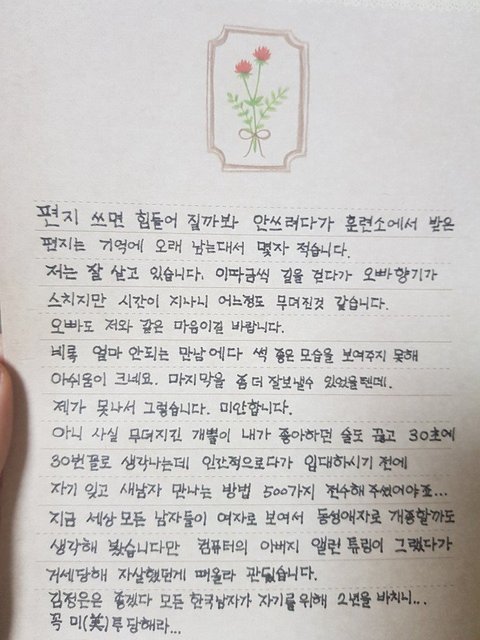 편지 쓰면 힘들어 질까봐 안쓰려다가 훈련소에서 받은
편지는 기억에 오래 남는대서 몇자 적습니다.
저는 잘 살고 있습니다. 이따금씩 길을 걷다가 오빠향기가
스치지만 시간이 지나니 어느정도 무뎌진것 같습니다.
오빠도 저와 같은 마음이길 바랍니다.
비록 얼마 안되는 만남에다 썩 좋은 모습을 보여주지 못해
아쉬움이 크네요. 마지막을 좀 더 잘보낼수 있었을텐데.
제가 못나서 그렇습니다. 미안합니다.
아니 사실 무뎌지긴 개뿔이 내가 좋아하던 술도 끊고 30초에
30번꼴로 생각나는데 인간적으로다가 입대하시기 전에
자기 잊고 새남자 만나는 방법 500가지 전수해 주셨어야죠...
지금 세상 모든 남자들이 여자로 보여서 동성애자로 개종할까도
생각해 봤습니다만 컴퓨터의 아버지 앨런 튜링이 그랬다가
거세당해 자살했던게 떠올라 관뒀습니다.
김정은은 좋겠다 모든 한국남자가 자기를위해 2년을 바치니...
꼭 미(美)투당해라...